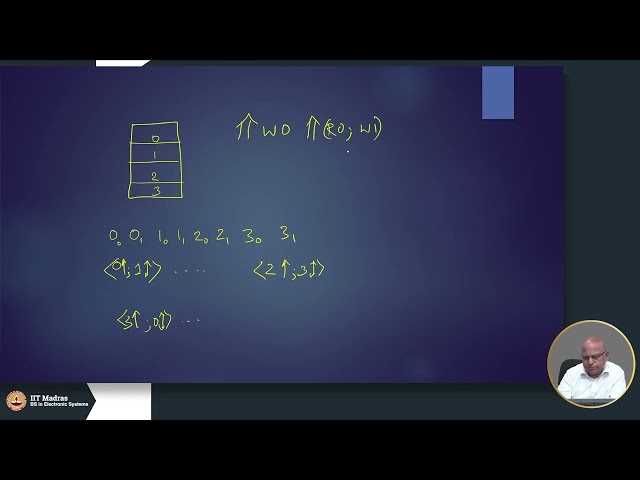 ⇑ W0 ⇑(R0; W1)
0
1
2
3
0₀ 0₁ 1₀ 1₁ 2₀ 2₁ 3₀ 3₁
<0↑; 1↕> .... <2↑; 3↕>
<3↑; 0↕> ...
IIT Madras
BS in Electronic Systems